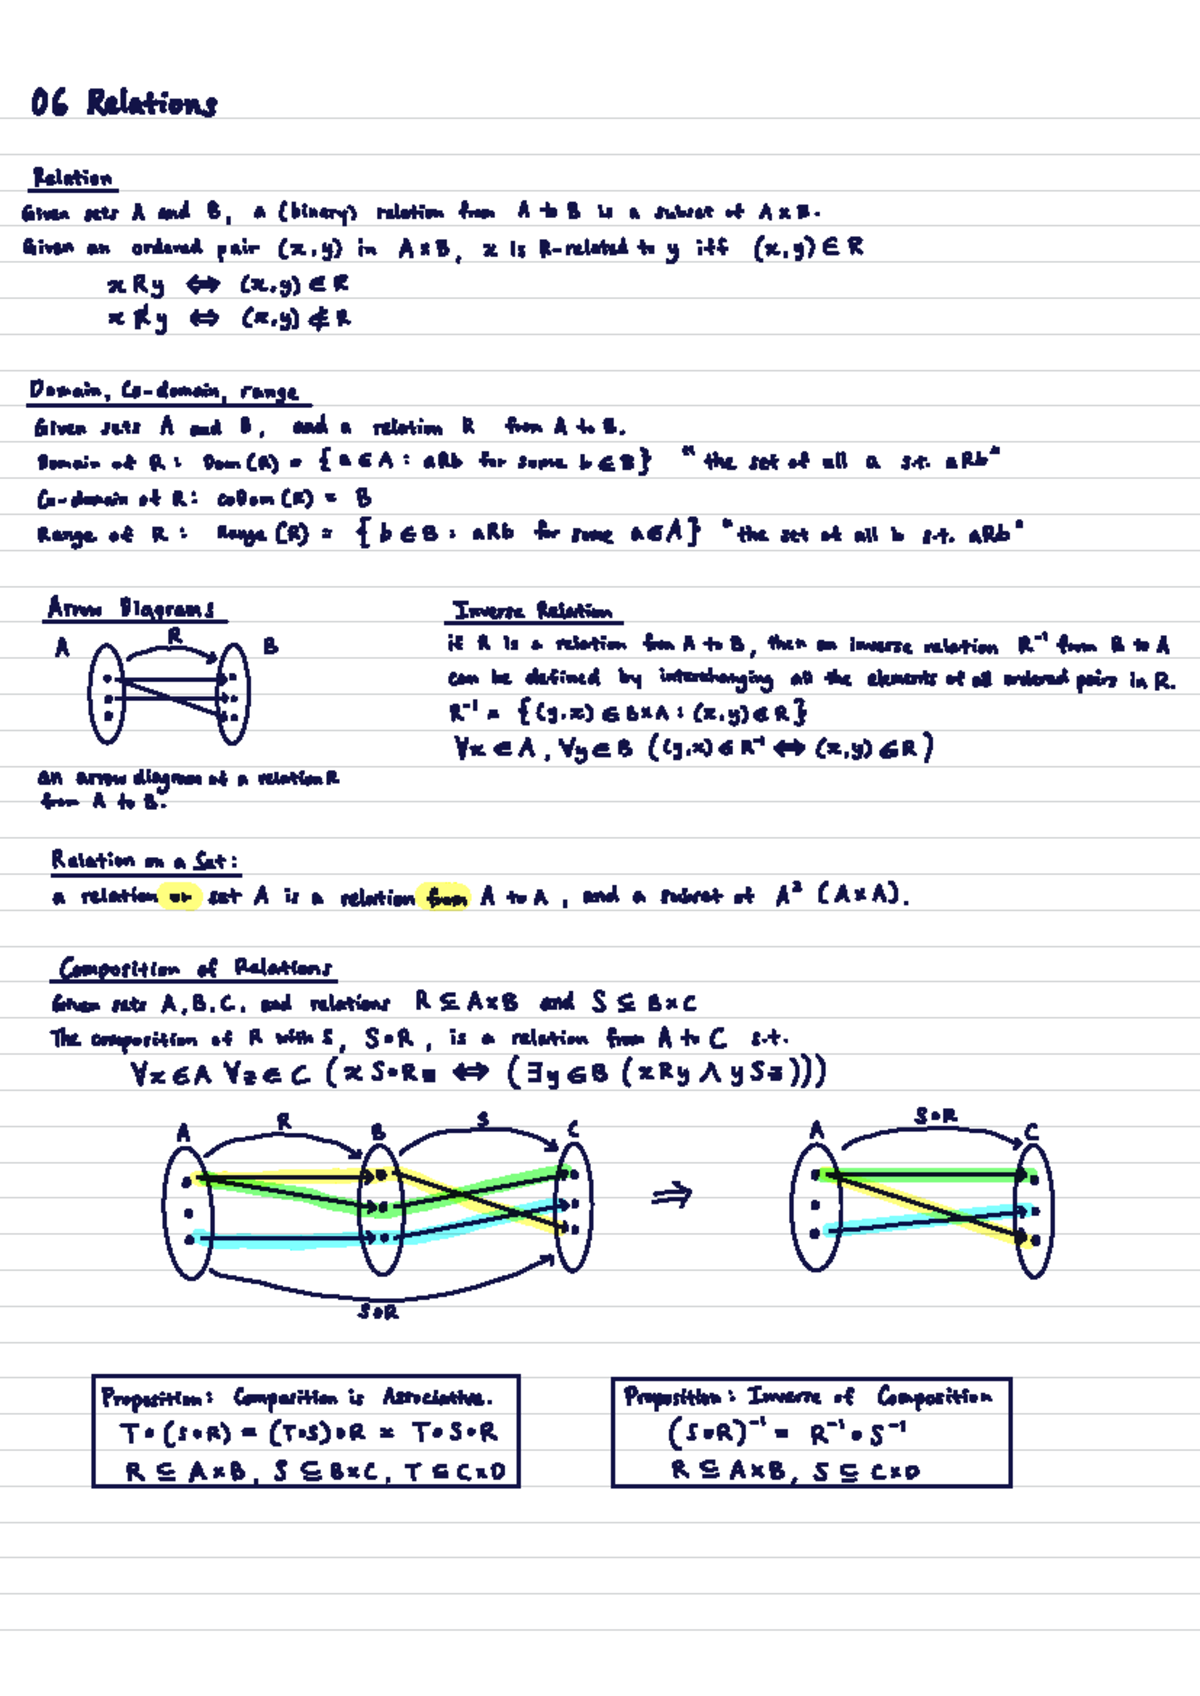 06 Relations
Relation
Given sets A and B, a (binary) relation from A to B is a subset of A×B.
Given an ordered pair (x,y) in A×B, x is R-related to y iff (x,y) ∈ R
x R y ⇔ (x,y) ∈ R
x R̸ y ⇔ (x,y) ∉ R
Domain, Co-domain, range
Given sets A and B, and a relation R from A to B.
Domain of R: Dom(R) = {a ∈ A : aRb for some b ∈ B} "the set of all a s.t. aRb"
Co-domain of R: coDom(R) = B
Range of R: Range(R) = {b ∈ B : aRb for some a ∈ A} "the set of all b s.t. aRb"
Arrow Diagrams
A R B
an arrow diagram of a relation R
from A to B.
Inverse Relation
if R is a relation from A to B, then an inverse relation R⁻¹ from B to A
can be defined by interchanging all the elements of all ordered pairs in R.
R⁻¹ = {(y,x) ∈ B×A : (x,y) ∈ R}
∀x ∈ A, ∀y ∈ B ((y,x) ∈ R⁻¹ ⇔ (x,y) ∈ R)
Relation on a Set:
a relation on set A is a relation from A to A, and a subset of A² (A×A).
Composition of Relations
Given sets A, B, C, and relations R ⊆ A×B and S ⊆ B×C
The composition of R with S, S∘R, is a relation from A to C s.t.
∀x ∈ A ∀z ∈ C (x S∘R z ⇔ (∃y ∈ B (x R y ∧ y S z)))
A R B S C
S∘R
⇒
A S∘R C
Proposition: Composition is Associative.
T∘(S∘R) = (T∘S)∘R = T∘S∘R
R ⊆ A×B, S ⊆ B×C, T ⊆ C×D
Proposition: Inverse of Composition
(S∘R)⁻¹ = R⁻¹∘S⁻¹
R ⊆ A×B, S ⊆ C×D